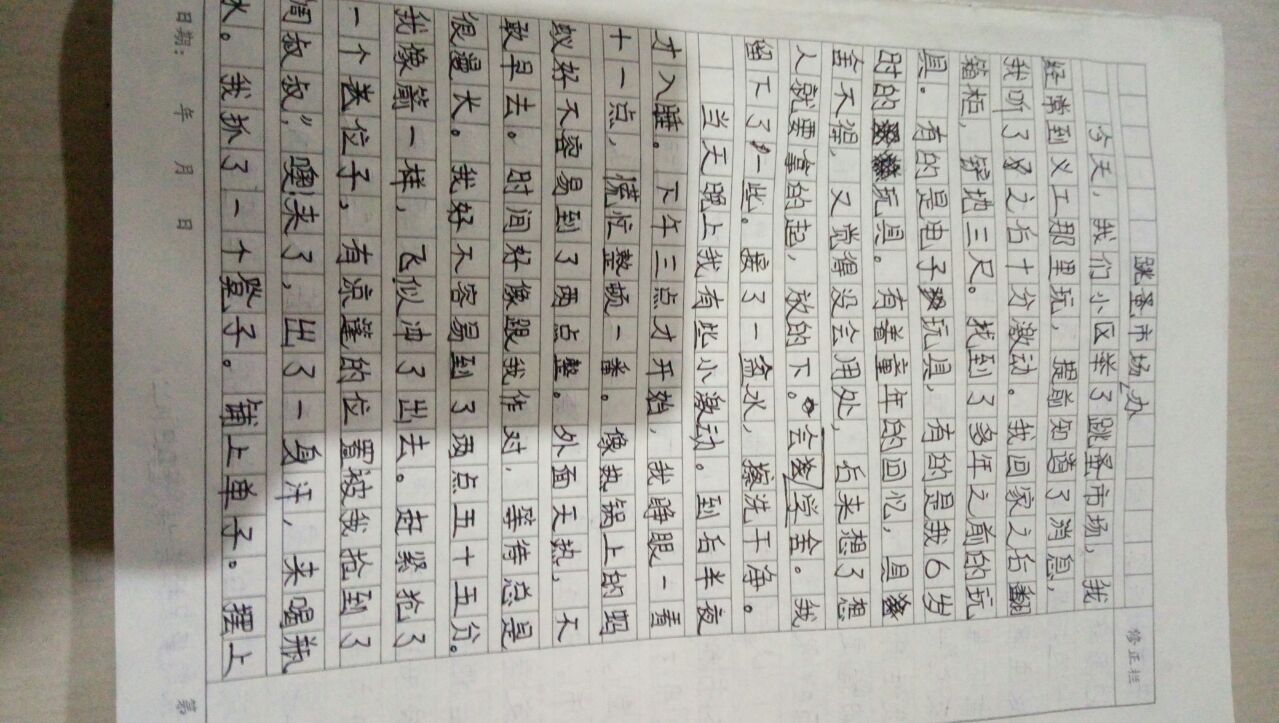 跳蚤市场
办
今天，我们小区举了跳蚤市场，我
经常到义工那里玩，提前知道了消息，
我听了之后十分激动。我回家之后翻
箱柜，挖地三尺。找到了多年之前的玩
具。有的是电子玩具，有的是我6岁
时的玩具。有着童年的回忆，具
舍不得，又觉得没会用处，后来想了想
人就要拿的起，放的下。会学舍。我
留下了一些。接了一盆水，擦洗干净。
当天晚上我有些小激动。到后半夜
才入睡。下午三点才开始，我睁眼一看
十一点，慌忙整顿一番。像热锅上的蚂
蚁好不容易到了两点整。外面天热，不
敢早去。时间好像跟我作对，等待总是
很漫长。我好不容易到了两点五十五分。
我像箭一样，飞似冲了出去。赶紧抢了
一个位子，有凉篷的位置被我抢到了
周叔叔，”噢！来了，出了一身汗，来喝瓶
水。我抓了一个凳子。铺上单子。摆上
日期： 年 月 日
第
修正栏